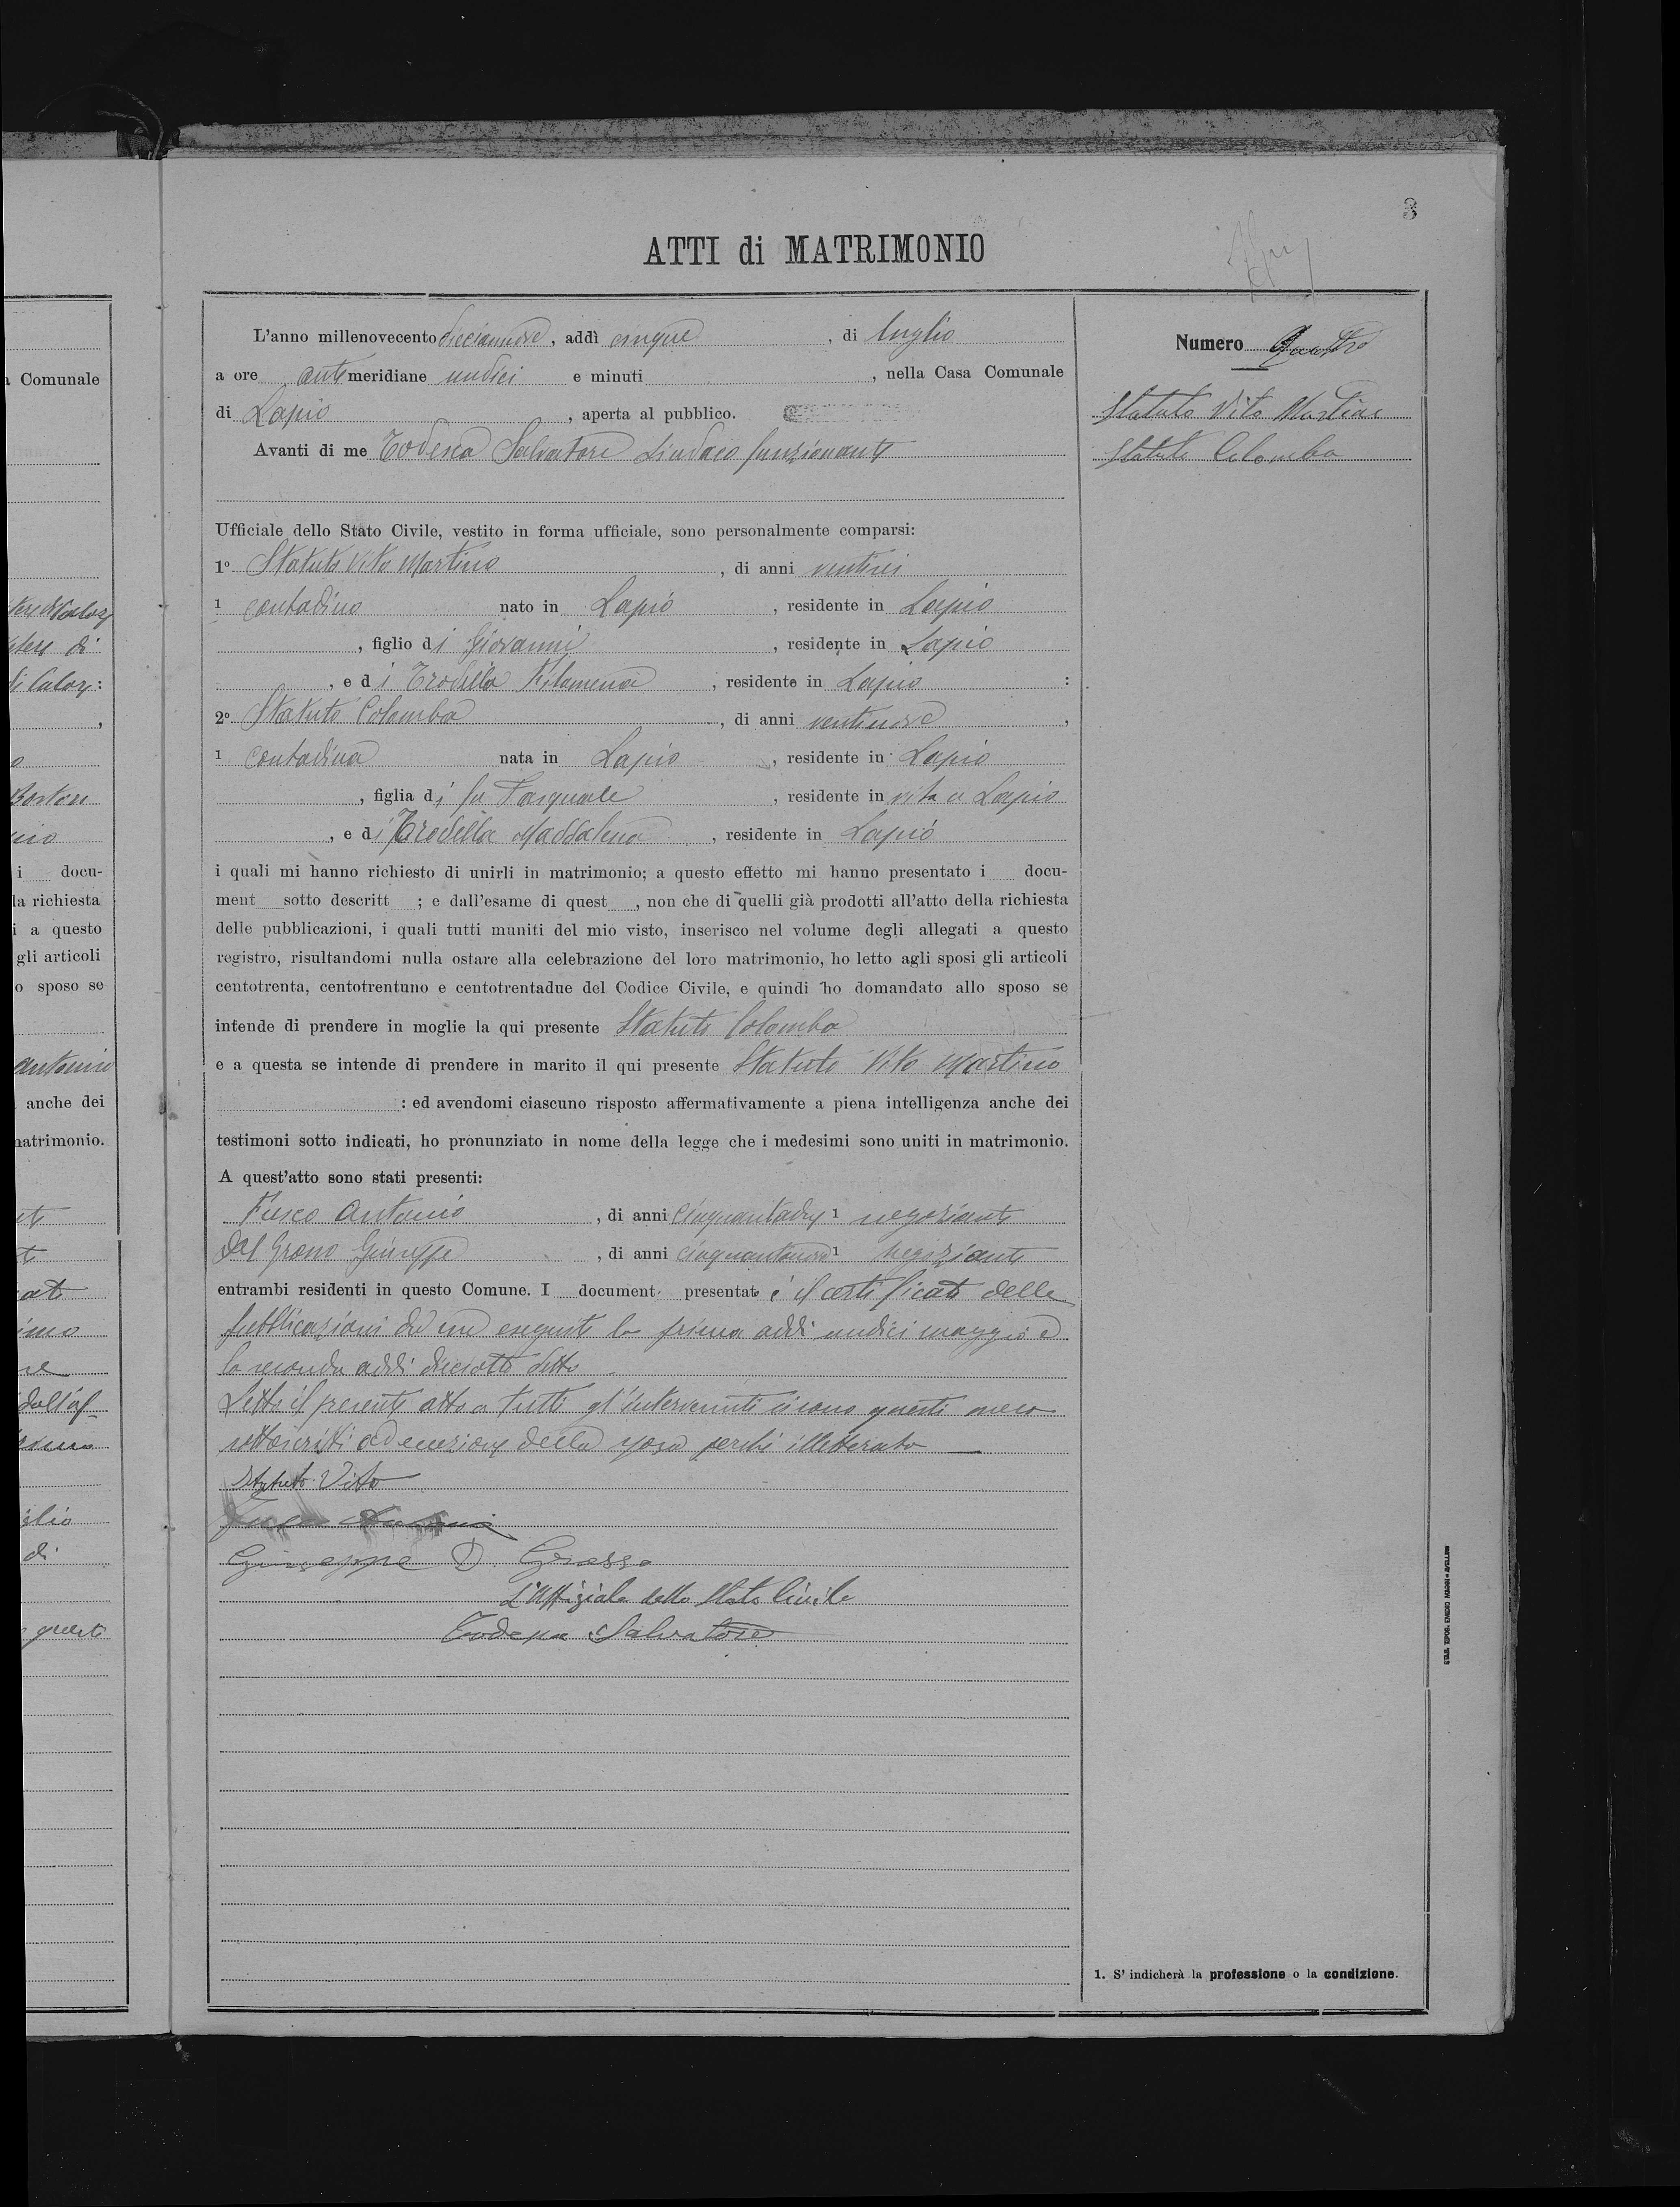 Comunale
Bartolo
i docu-
la richiesta
i a questo
gli articoli
o sposo se
Antonio
anche dei
matrimonio.
dell'af-
glio
di
questi
3
ATTI di MATRIMONIO
L'anno millenovecento diciannove, addì cinque, di luglio
a ore antimeridiane undici e minuti , nella Casa Comunale
di Lapio, aperta al pubblico.
Avanti di me Todesca Salvatore Sindaco funzionante
Ufficiale dello Stato Civile, vestito in forma ufficiale, sono personalmente comparsi:
1° Statuto Vito Martino, di anni ventisei
1 contadino nato in Lapio, residente in Lapio
, figlio di Giovanni, residente in Lapio
, e di Trodella Filomena, residente in Lapio :
2° Statuto Colomba, di anni ventinove,
1 contadina nata in Lapio, residente in Lapio
, figlia di fu Pasquale, residente in vita a Lapio
, e di Trodella Maddalena, residente in Lapio
i quali mi hanno richiesto di unirli in matrimonio; a questo effetto mi hanno presentato i docu-
ment sotto descritt ; e dall'esame di quest , non che di quelli già prodotti all'atto della richiesta
delle pubblicazioni, i quali tutti muniti del mio visto, inserisco nel volume degli allegati a questo
registro, risultandomi nulla ostare alla celebrazione del loro matrimonio, ho letto agli sposi gli articoli
centotrenta, centotrentuno e centotrentadue del Codice Civile, e quindi ho domandato allo sposo se
intende di prendere in moglie la qui presente Statuto Colomba
e a questa se intende di prendere in marito il qui presente Statuto Vito Martino
: ed avendomi ciascuno risposto affermativamente a piena intelligenza anche dei
testimoni sotto indicati, ho pronunziato in nome della legge che i medesimi sono uniti in matrimonio.
A quest'atto sono stati presenti:
Fusco Antonio, di anni 1 negoziante
Del Grosso Giuseppe, di anni cinquantanove 1 negoziante
entrambi residenti in questo Comune. I document presentato è il certificato delle
pubblicazioni da me eseguite la prima addì undici maggio e
la seconda addì diciotto detto
Letto il presente atto a tutti gl'intervenuti si sono questi meco
sottoscritti ad eccezione della sposa perché illetterata
Statuto Vito
Fusco Antonio
Giuseppe D Grosso
L'Uffiziale dello Stato Civile
Todesca Salvatore
Numero Quattro
Statuto Vito Martino
Statuto Colomba
1. S' indicherà la professione o la condizione.